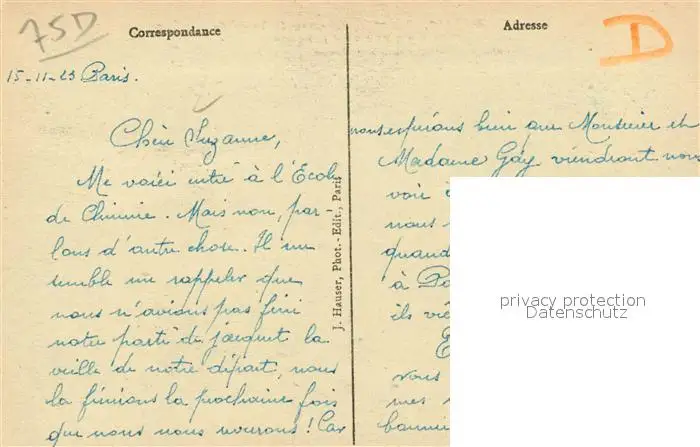 75D
Correspondance
Adresse
D
15-11-23 Paris.
Chère Suzanne,
Me voici entré à l'École
de Chimie. Mais non, par-
lons d'autre chose. Il me
semble me rappeler que
nous n'avions pas fini
notre parti de jacquet la
veille de notre départ, nous
la finirons la prochaine fois
que nous nous reverrons ! Car
J. Hauser, Phot.-Edit., Paris
nous espérons bien que Monsieur et
Madame Gay viendront nous
voir
nous
quand
à
ils
vous
mes
privacy protection
Datenschutz